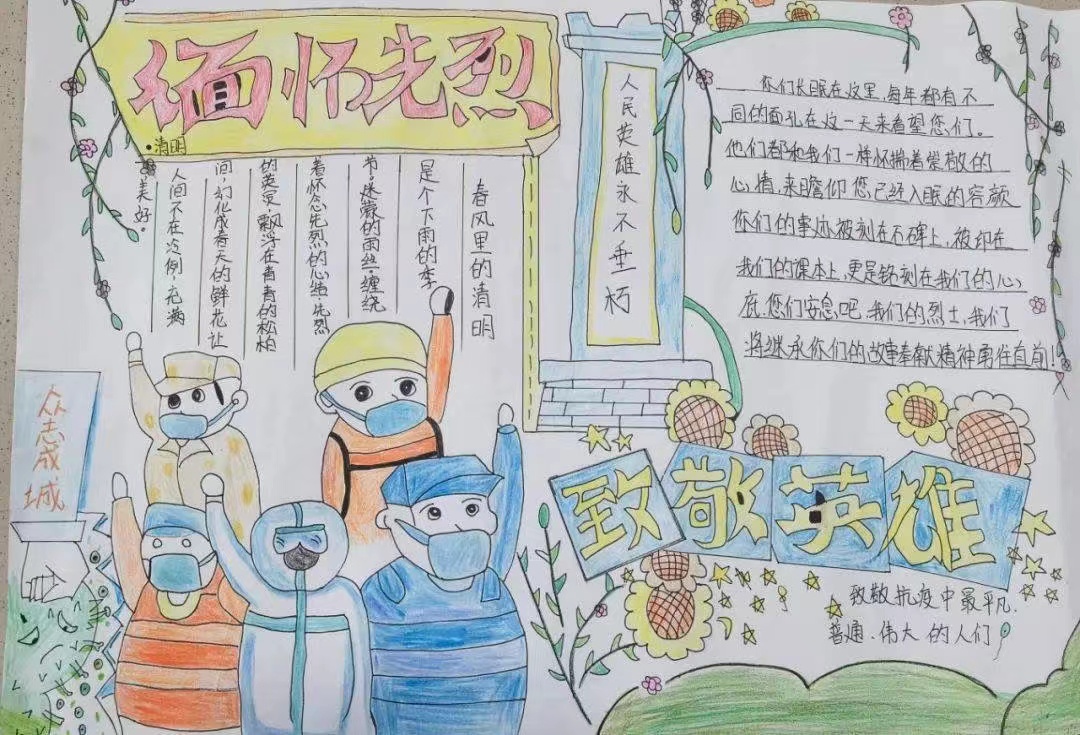 缅怀先烈
•清明
春风里的清明
是个下雨的季
节,迷蒙的雨丝,缠绕
着怀念先烈的心绪,先烈
的英灵,飘浮在青青的松柏
间,幻化成春天的鲜花让
人间不在冷例,充满
美好。
人民英雄永不垂朽
你们长眠在这里,每年都有不
同的面孔在这一天来看望您们。
他们都和我们一样怀揣着崇敬的
心情,来瞻仰您已经入眠的容颜
你们的事迹被刻在石碑上,被印在
我们的课本上,更是铭刻在我们的心
底.您们安息吧.我们的烈士,我们
将继承你们的故事奉献精神勇往直前!
众志成城
致敬英雄
致敬抗疫中最平凡.
普通.伟大的人们